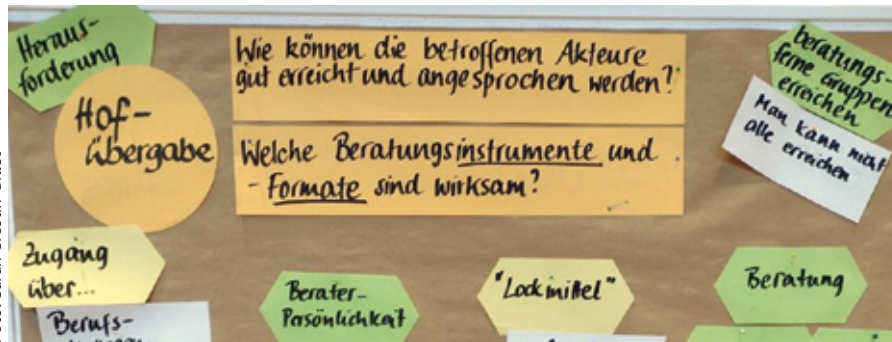 Heraus-
forderung
Hof-
übergabe
Wie können die betroffenen Akteure
gut erreicht und angesprochen werden?
Welche Beratungsinstrumente und
-Formate sind wirksam?
beratungs-
ferne Gruppen
erreichen
Man kann nicht
alle erreichen
Zugang
über...
Berufs-
Berater-
Persönlichkeit
"Lockmittel"
Beratung